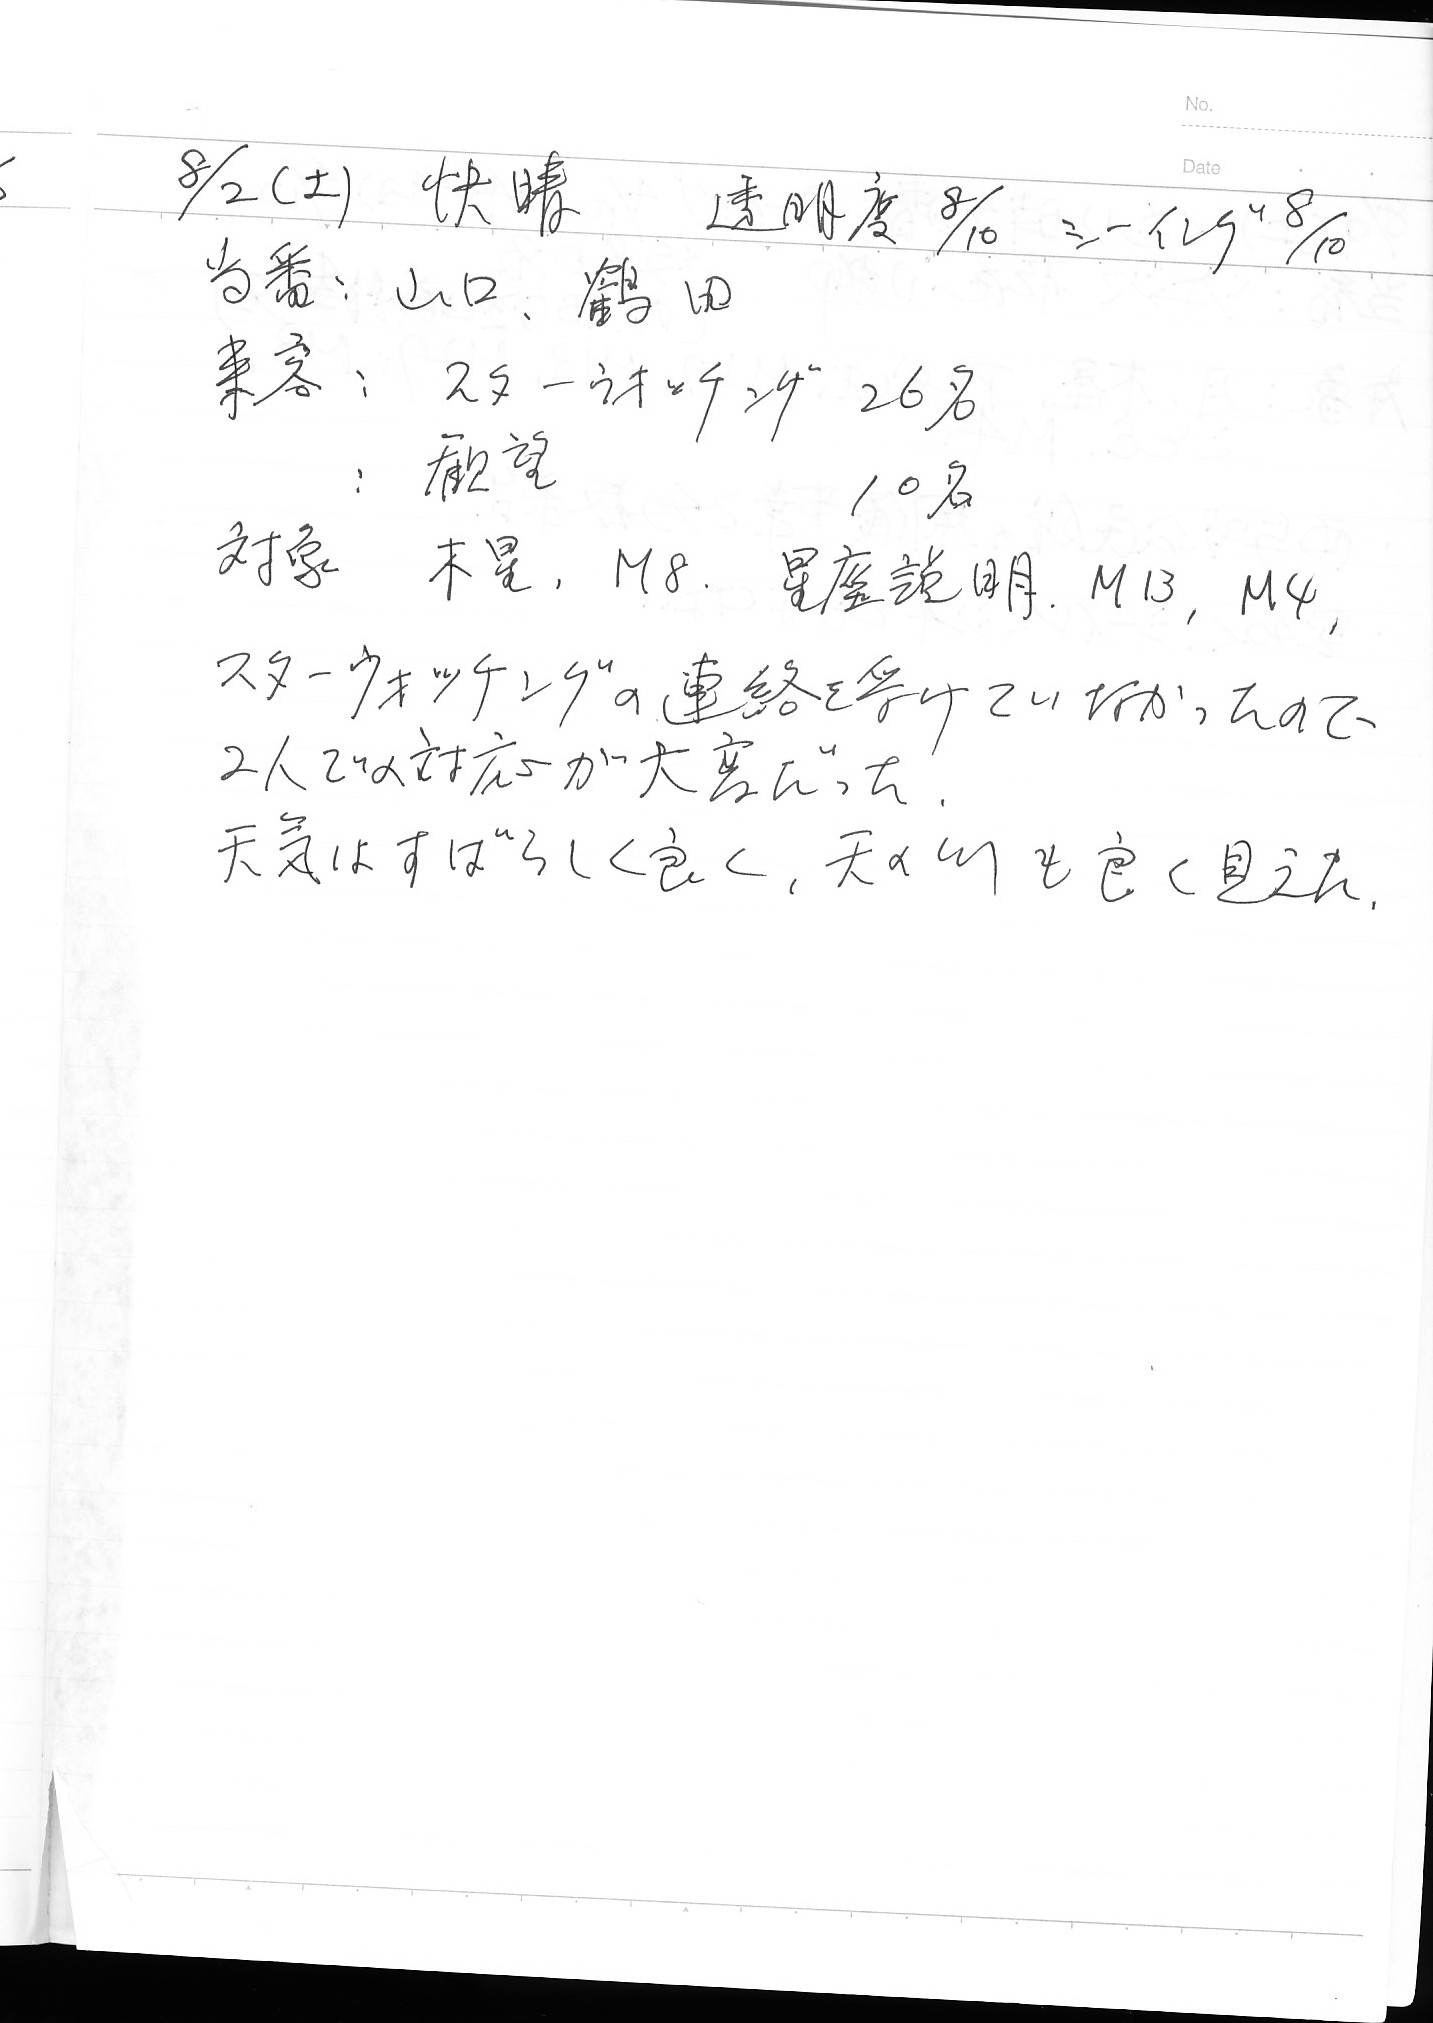 No.
Date
8/2(土) 快晴 透明度 8/10 シーイング 8/10
当番: 山口、鶴田
来客: スターウォッチング 26名
: 観望 10名
対象 木星, M8. 星座説明. M13, M4,
スターウォッチングの連絡を受けていなかったので、
2人での対応が大変だった.
天気はすばらしく良く, 天の川も良く見えた.